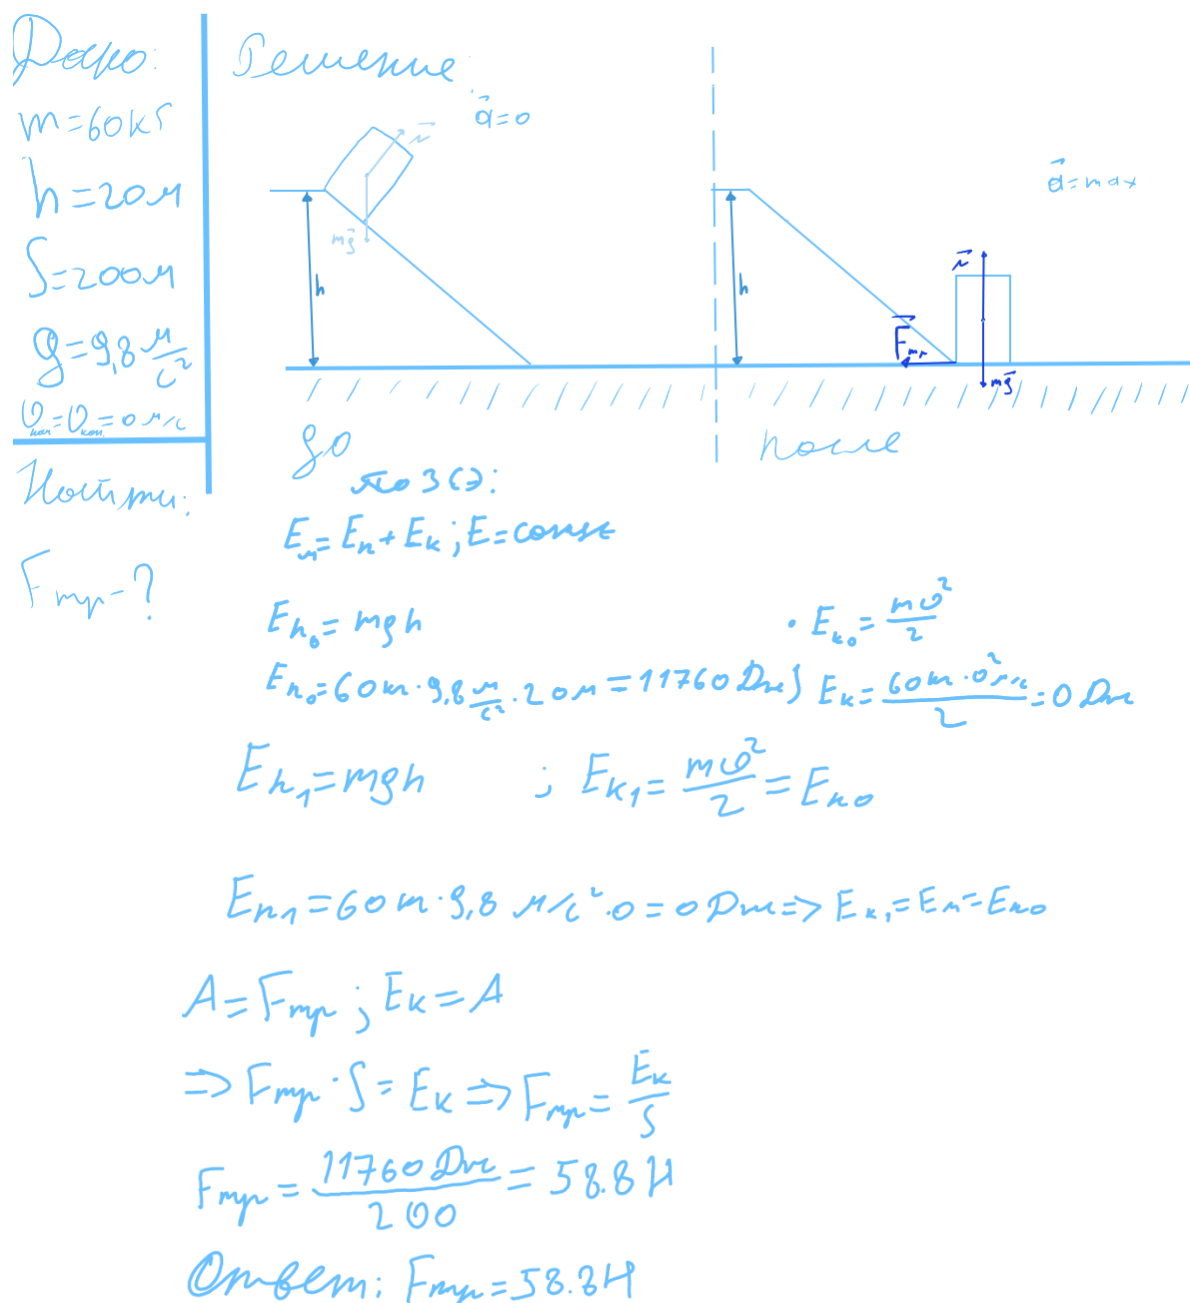 Дано:
m=60кг
h=20м
S=200м
g=9,8 м/с²
υнач=υкон=0 м/с
Найти:
Fтр-?
Решение
a⃗=0
N⃗
mg⃗
h
до
a⃗=max
N⃗
h
F⃗тр
mg⃗
после
по ЗСЭ:
Eм=Eп+Eк; E=const
Eп₀=mgh
• Eк₀=mυ²/2
Eп₀=60кг·9,8 м/с²·20м=11760Дж; Eк=60кг·0²м/с/2=0Дж
Eп₁=mgh ; Eк₁=mυ²/2=Eп₀
Eп₁=60кг·9,8 м/с²·0=0Дж=>Eк₁=Eм=Eп₀
A=Fтр; Eк=A
=>Fтр·S=Eк=>Fтр=Eк/S
Fтр=11760Дж/200=58.8Н
Ответ: Fтр=58.8Н